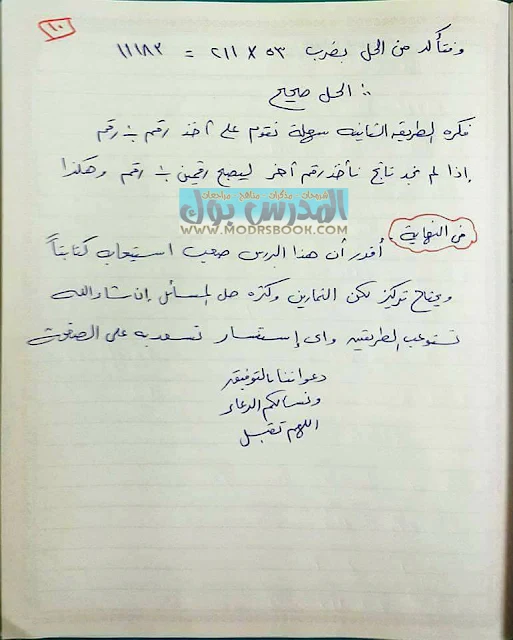 ١٠
ونتأكد من الحل بضرب ٥٣ × ٢١١ = ١١١٨٣
∴ الحل صحيح
فكرة الطريقة الثانية سهلة تقوم على أخذ رقم ÷ رقم
إذا لم نجد ناتج نأخذ رقم أخر ليصبح رقمين ÷ رقم وهكذا
شروحات مذكرات مناهج مراجعات
المدرس بوك
WWW.MODRSBOOK.COM
فى النهاية
أقدر أن هذا الدرس صعب استيعابه كتابتاً
ويحتاج تركيز لكن التمارين وكثرة حل المسائل إن شاء الله
تستوعب الطريقتين واى إستفسار تسعد به على الصفحة
دعواتنا بالتوفيق
ونسالكم الدعاء
اللهم تقبل